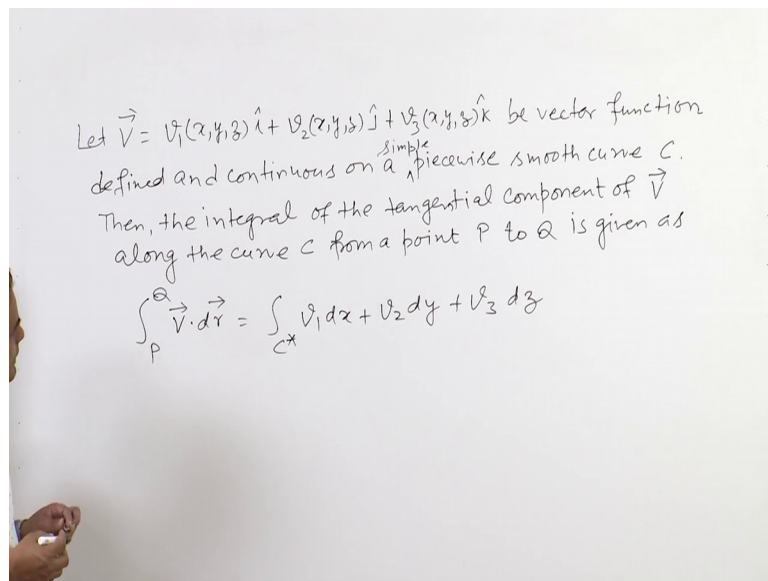 Let V⃗ = v₁(x,y,z) î + v₂(x,y,z) ĵ + v₃(x,y,z) k̂ be vector function
defined and continuous on a simple piecewise smooth curve C.
Then, the integral of the tangential component of V⃗
along the curve C from a point P to Q is given as
∫_P^Q V⃗·dr⃗ = ∫_{C*} v₁dx + v₂dy + v₃dz